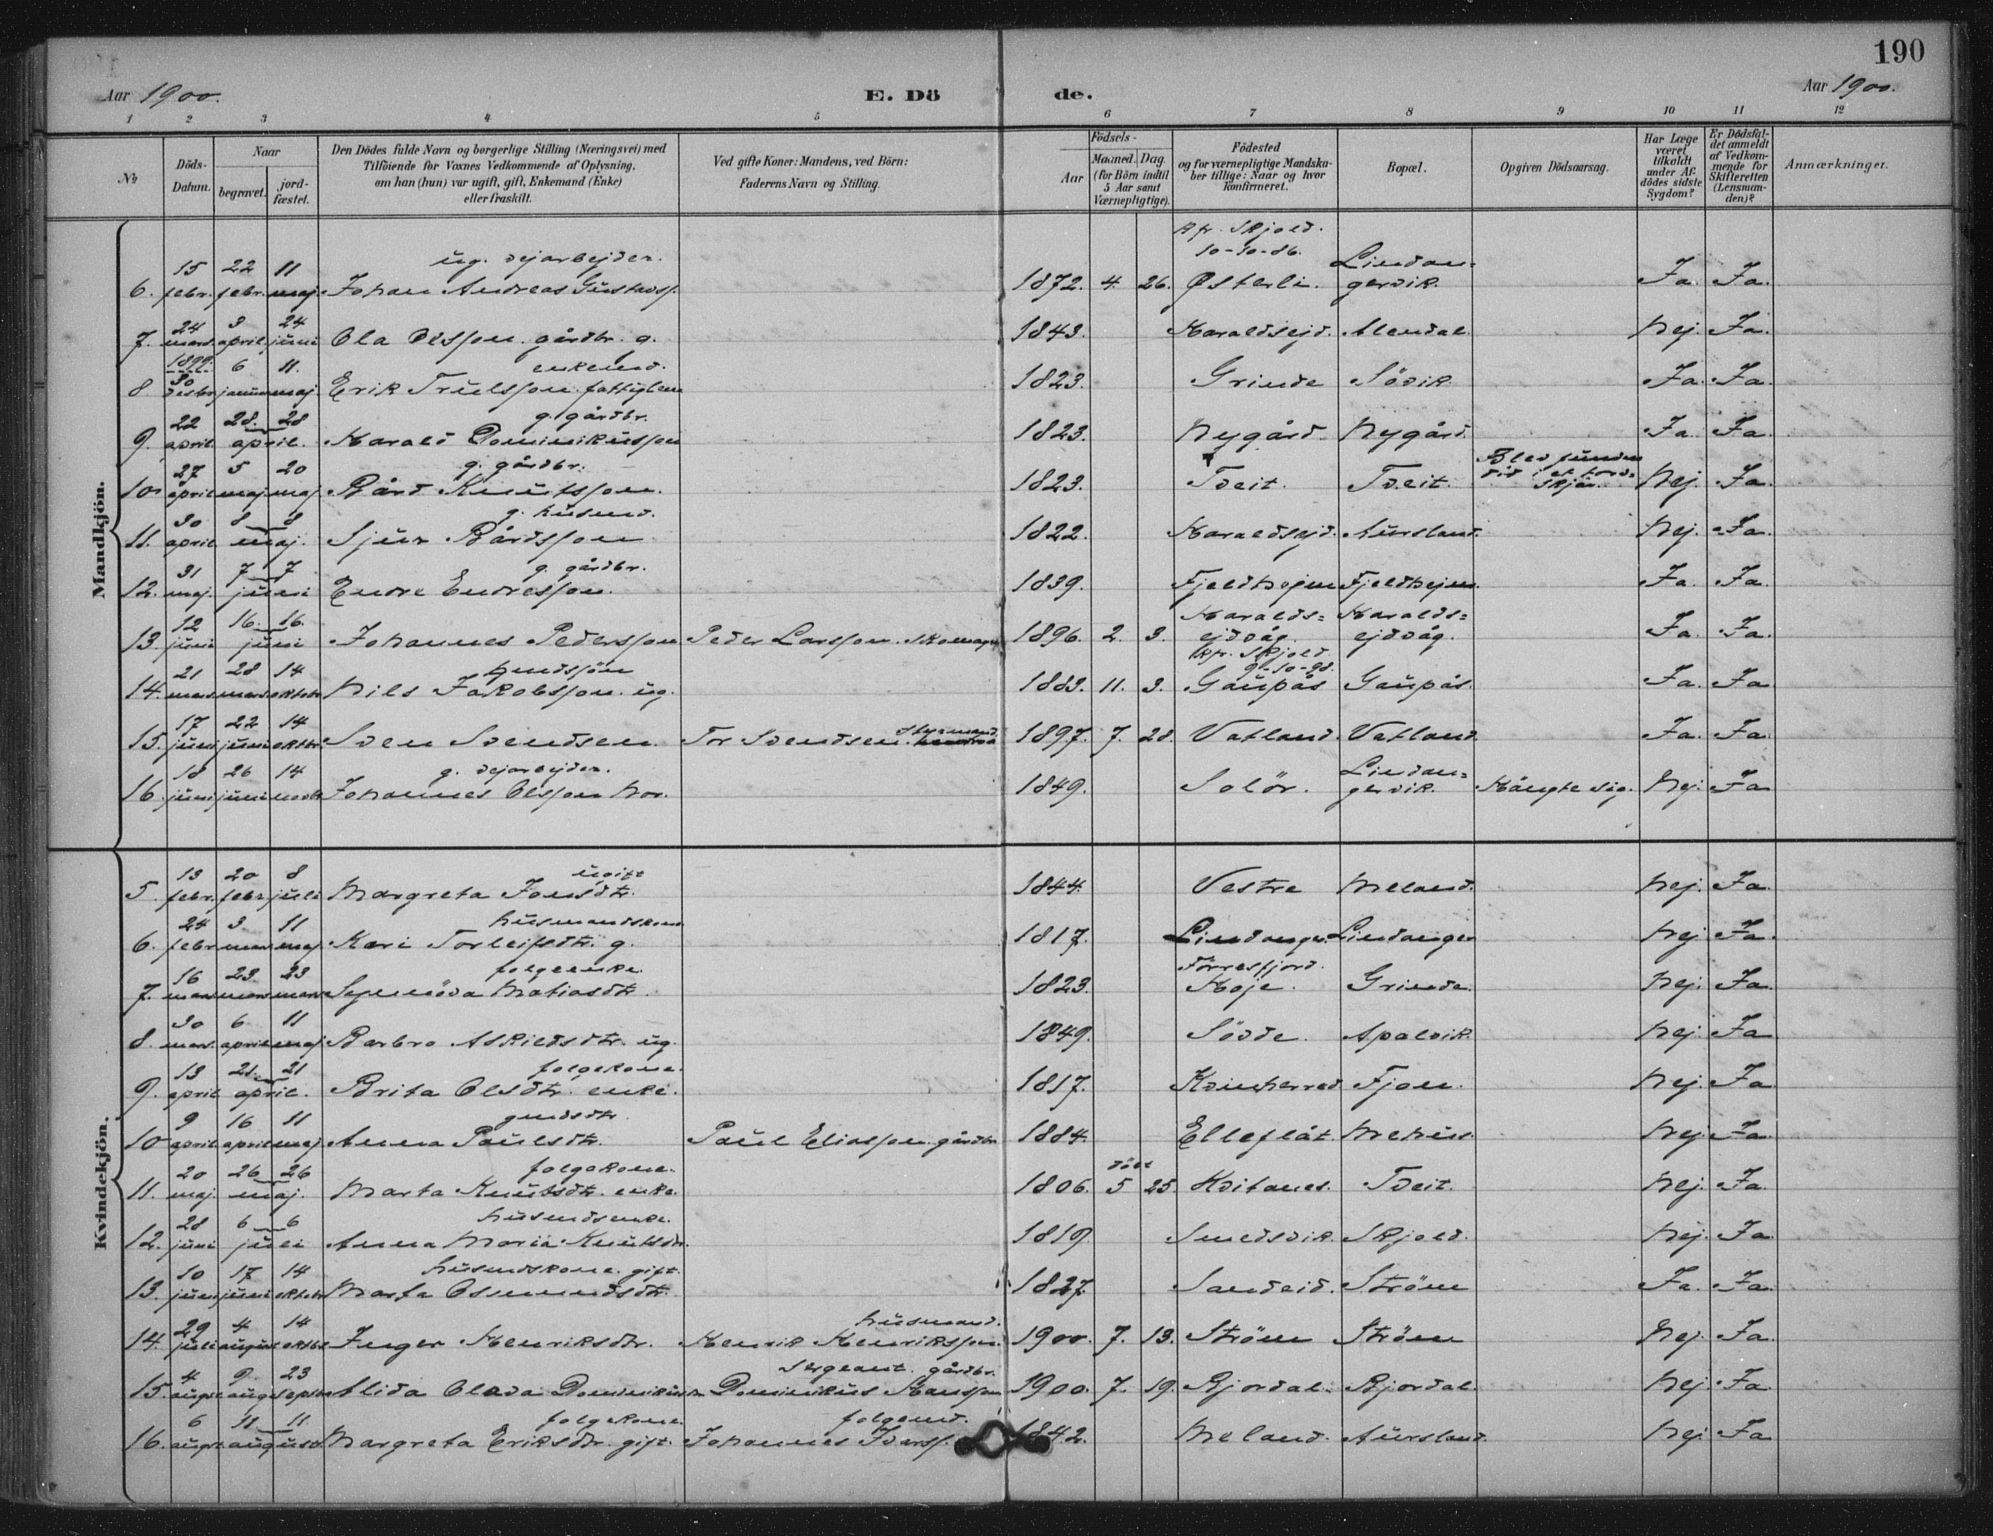 190
Aar 1900. E. Dö de. Aar 1900.
1 2 3 4 5 6 7 8 9 10 11 12
No
Döds-Datum.
Naar begravet. jord-fæstet.
Den Dödes fulde Navn og borgerlige Stilling (Næringsvei) med Tilföiende for Voxnes Vedkommende af Oplysning, om han (hun) var ugift, gift, Enkemand (Enke) eller fraskilt.
Ved gifte Koner: Mandens, ved Börn: Faderens Navn og Stilling.
Födsels-
Aar Maaned. Dag. (for Börn indtil 5 Aar samt Værnepligtige).
Födested og for værnepligtige Mandska-ber tillige: Naar og hvor Konfirmeret.
Bopæl.
Opgiven Dödsaarsag.
Har Læge været tilkaldt under Af-dödes sidste Sygdom?
Er Dödsfal-det anmeldt af Vedkom-mende for Skifteretten (Lensman-den)?
Anmærkninger.
Mandkjön.
6. 15 febr. 22 febr. 11 maj. Johan Andreas Gustavss. ug. vejarbejder. 1872. 4. 26. Kfr. Skjold. 10-10-86. Østerli. Lindan=gervik. Ja. Ja.
7. 24 mars 3 april 24 juni Ola Olsson. gårdbr. g. 1843. Haraldsejd. Alendal. Nej. Ja.
8 1899. 30 desbr 6 januar 11. maj. Erik Trulsson. enkemd. fattiglem 1823. Grinde Sövik. Ja. Ja.
9. 22 april 28. 28 april. Harald Dominikusson g. gårdbr. 1823. Nygård. Nygård. Ja. Ja.
10. 27 april 5 maj 20 maj Bård Knutsson. g. gårdbr. 1823. Tveit. Tveit. Blev funden Nej. Ja.
11. 30 april 8 8 maj. Sjur Bårdsson g. husmd. 1822. Haraldsejd. Aursland. Nej. Ja.
12. 31 maj. 7 7 juni Endre Endresson. g. gårdbr. 1839. Fjeldhejm Fjeldhejm. Ja. Ja.
13. 12 juni 16. 16. juni Johannes Pedersson Peder Larsson. Skomager 1896. 2. 3. Haralds=ejdvåg. Haralds=ejdvåg. Ja. Ja.
14. 21 mars 28 mars 14 oktobr Nils Jakobsson. ug. 1883. 11. 3. Kfr. Skjold 9-10-98. Gaupås Gaupås. Ja. Ja.
15. 17 juni 22 juni 14 oktbr Sven Svendsen. Tor Svendsen. Styrmand. 1897. 7. 28. Vatland. Vatland. Ja. Ja.
16. 18 juni 26 juni 14 Johannes Olsson g. vejarbejder. 1849. Solör. Lindan=gervik. Hängte sig. Nej. Ja
Kvindekjön.
5. 13 febr. 20 febr. 8 juli Margreta Jonsdtr. ugift 1844. Vestre Meland. Nej. Ja.
6. 24 febr. 3. mars 11 maj. Kari Torleifsdtr. g. husmandskone 1817. Lindanger. Lindanger Nej Ja.
7. 16 mars 23 mars 23 mars Synnöva Matiasdtr. folgeenke. 1823. Förresfjord. Grinde. Nej. Ja.
8. 30 mars. 6 april 11 maj. Barbro Askildsdtr. ug. 1849. Sövde. Apalvik. Nej. Ja
9. 13 april 21. 21 april. Brita Olsdtr. enke. folgekone. 1817. Kvinherred Fjon. Nej. Ja
10 9 april 16 april 11 maj. Anna Paulsdtr. gmdsdtr. Paul Eliasson. gårdbr. 1884. Elleflåt. Mehus. Nej. Ja.
11. 20 maj. 26 26 maj. Marta Knutsdtr. enke. folgekone. 1806. döbt 5 25 Hvitanes. Tveit. Nej. Ja
12. 28 juni 6 6 juli Anna Maria Knutsdtr. husmdsenke. 1819 Smedsvik. Skjold. Nej. Ja
13. 10 juni 17 juni 14 oktobr Marta Osmundsdtr. husmdskone. gift. 1827. Sandeid. Ström Ja. Ja.
14. 29 juli 4 august 14 oktbr Inger Henriksdtr. Henrik Henriksson. husmand. 1900. 7. 13. Ström Ström Nej. Ja.
15. 4 augst 9. aug. 23 septbr Alida Olava Dominikusdtr. Dominikus Hansson Sergeant. gårdbr. 1900. 7. 19. Bjordal. Bjordal. Nej Ja.
16. 6 augst 11 11. august Margreta Eriksdtr. gift. folgekone. Johannes Iverss. folgemd. 1842. Meland. Aursland. Nej. Ja